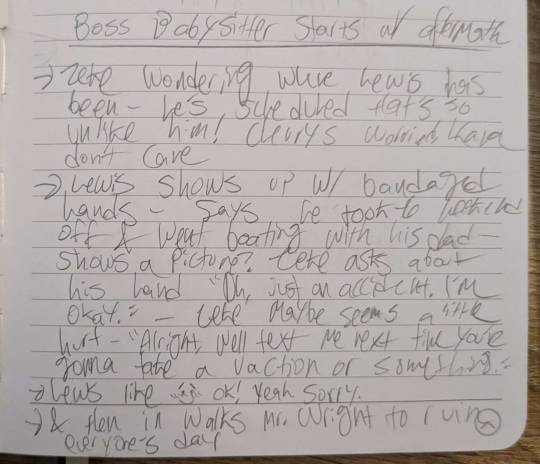 Boss Babysitter Starts w/ aftermath
→ Zeke Wondering where Lewis has
been - he's scheduled that's so
unlike him! Cleurys worried Kara
don't care
→ Lewis shows up w/ bandaged
hands - Says he took to weekend
off & went boating with his dad -
shows a picture? Zeke asks about
his hand "Oh, just an accident. I'm
okay." - Zeke Maybe seems a little
hurt - "Alright, well text me next time you're
gonna take a vaction or something."
→ Lewis like ok! yeah sorry.
→ & then in walks Mr. Wright to ruin
everyone's day